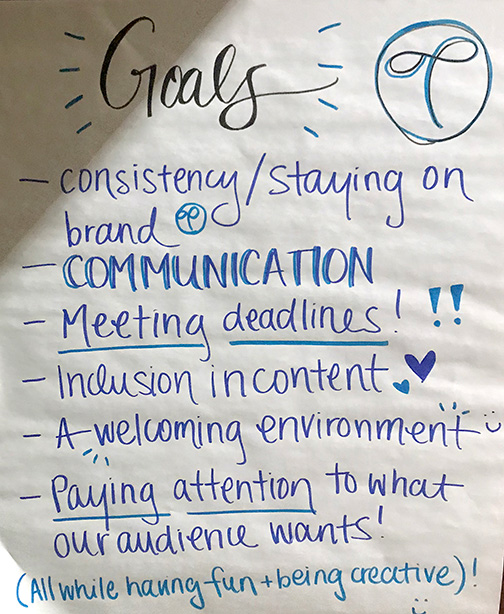 Goals
- consistency/staying on
brand
- COMMUNICATION
- Meeting deadlines! !!
- Inclusion in content
- A welcoming environment
- Paying attention to what
our audience wants!
(All while having fun + being creative)!